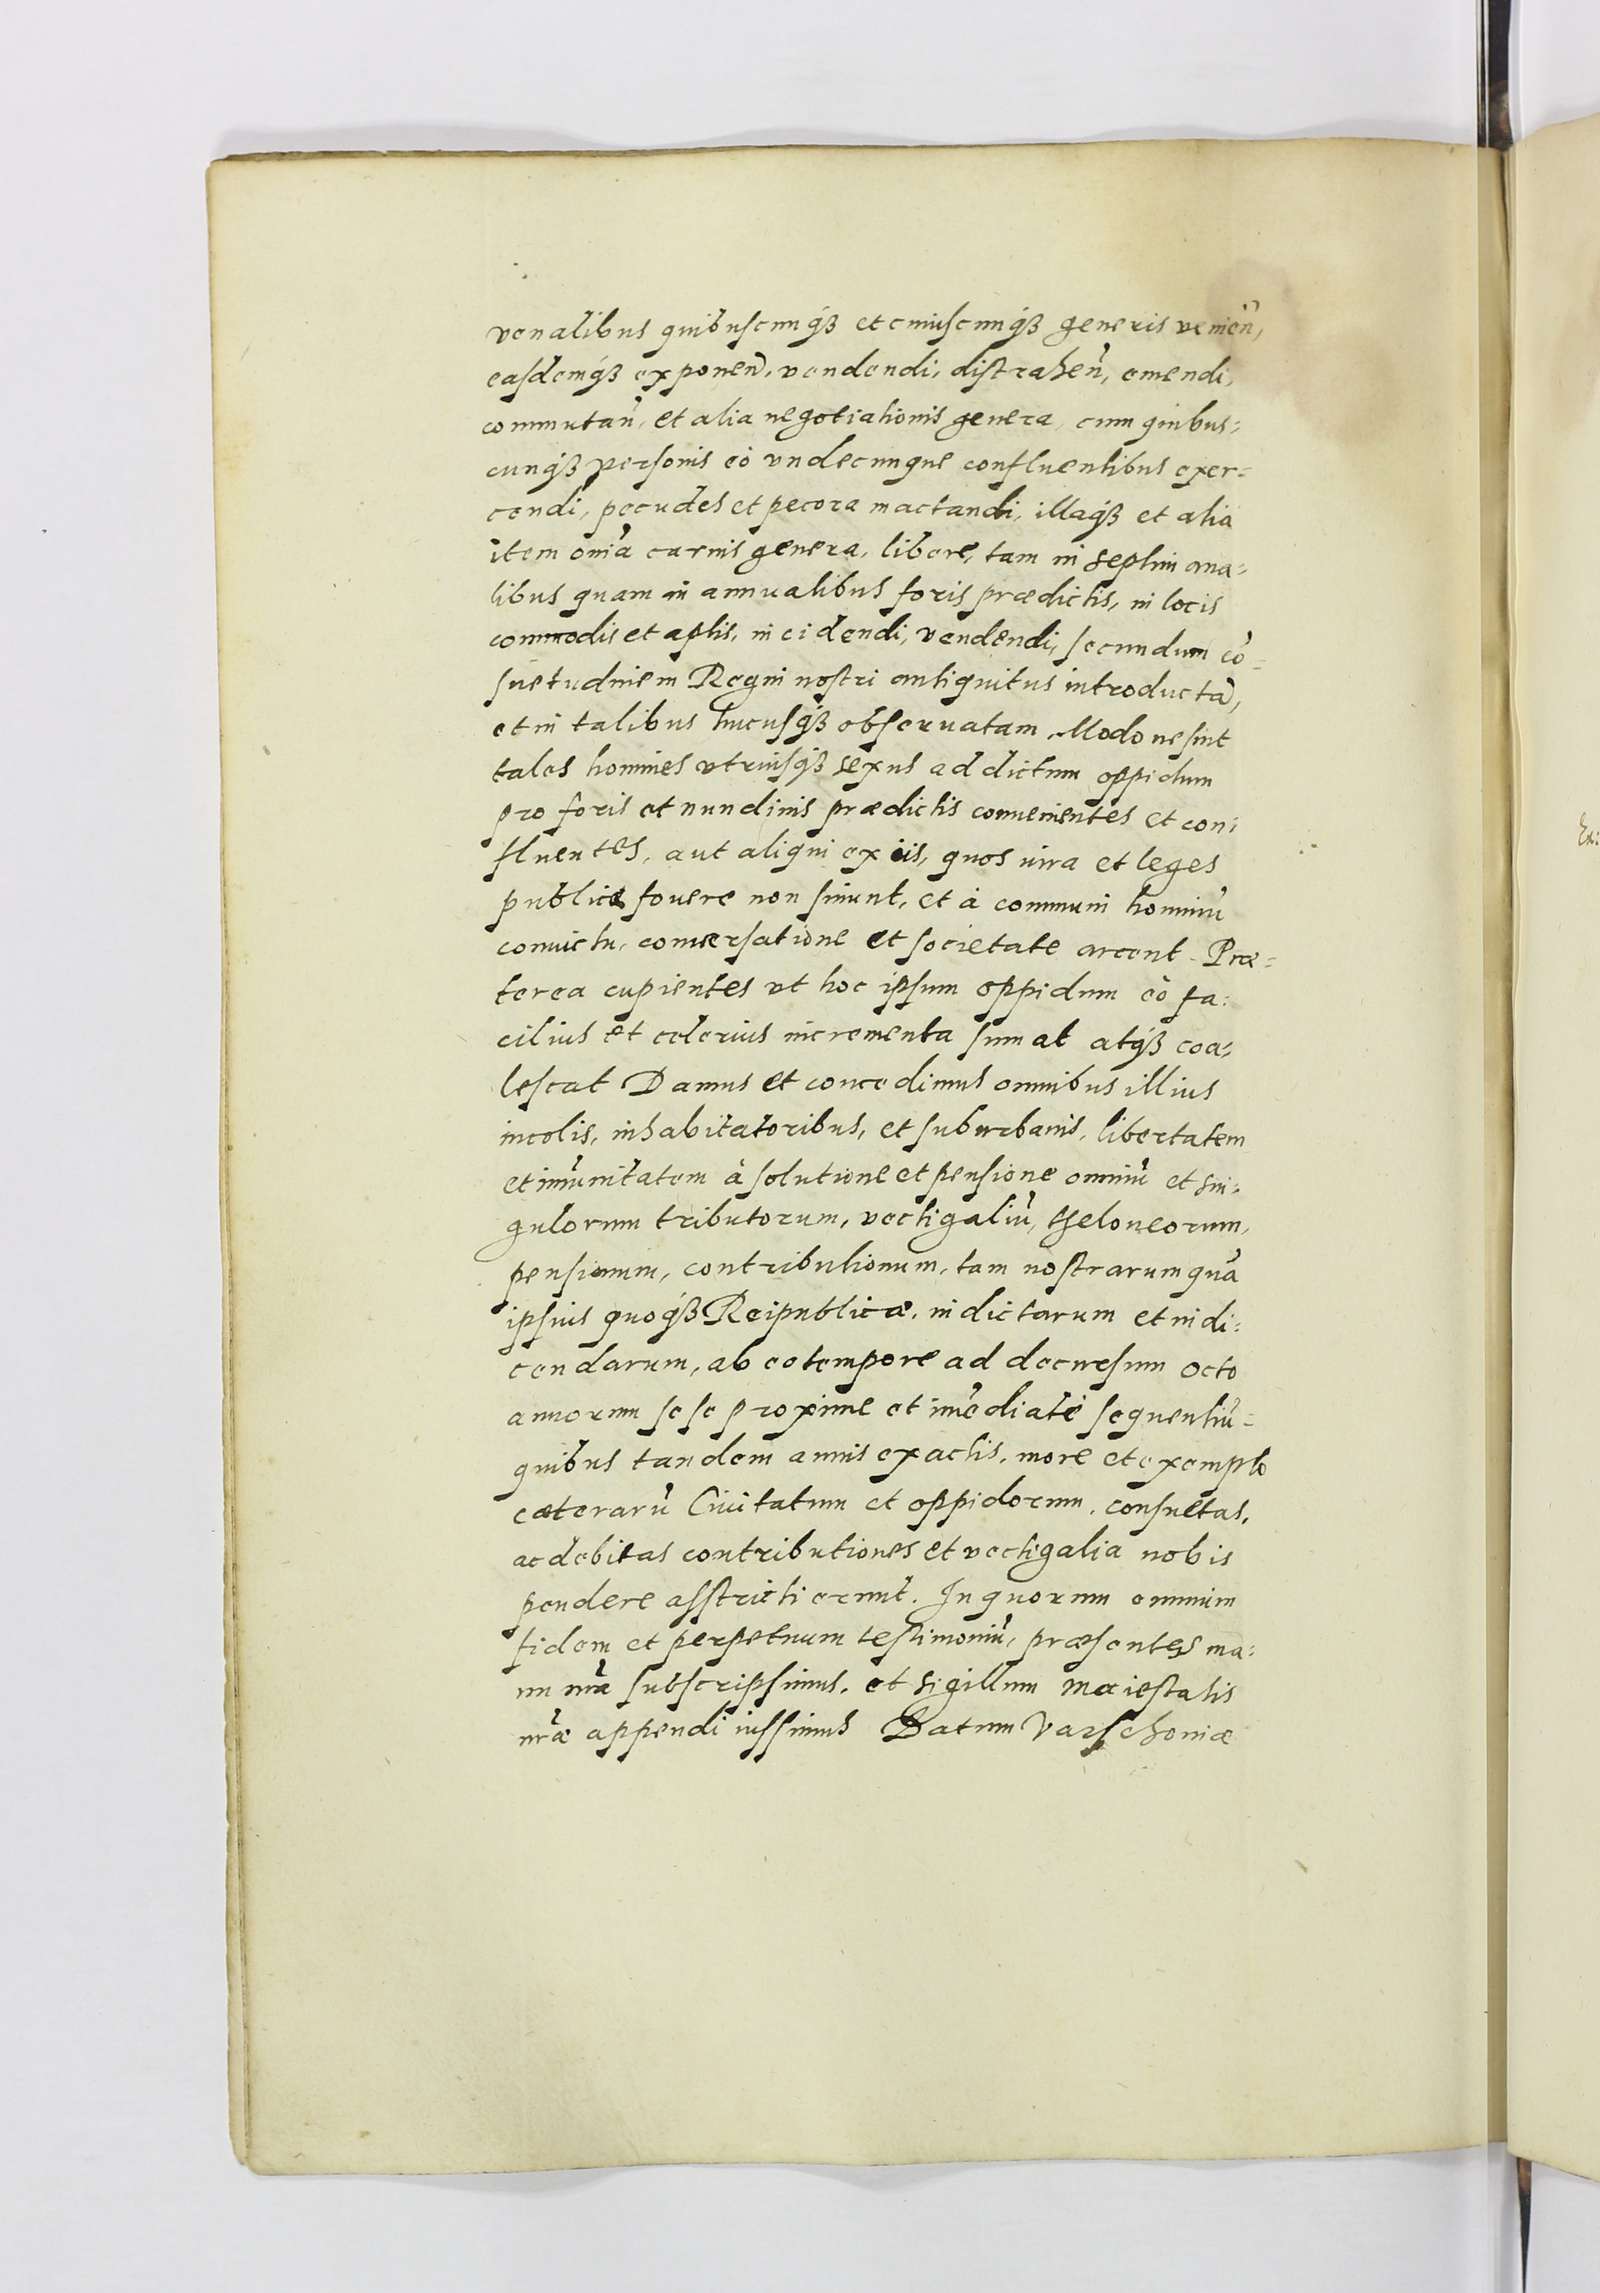 venalibus quibuscunq&#769;ꝫ et cuiuscunq&#769;ꝫ generis venień,
easdemq&#769;ꝫ exponeñ, vendendi, distraheñ, emendi,
commutañ, et alia negotiationis genera, cum quibus=
cunq&#769;ꝫ personis eò vndecunque confluentibus exer=
cendi, pecudes et pecora mactandi, illaq&#769;ꝫ et alia
item omĩa carnis genera, libere, tam in septim ana=
libus quam in annualibus foris prædictis, in locis
commodis et aptis, incidendi, vendendi, secundum cõ=
suetudinem Regni nostri antiquitus introductã,
et in talibus hucusq&#769;ꝫ obseruatam. Modo ne sint
tales homines vtriusq&#769;ꝫ sexus ad dictum oppidum
pro foris et nundinis prædictis conuenientes et con=
fluentes, aut aliqui ex iis, quos iura et leges
publicè fouere non sinunt, et à communi hominũ
conuictu, conuersatione et societate arcent. Præ=
terea cupientes vt hoc ipsum oppidum eò fa=
cilius et celerius incrementa sumat atq&#769;ꝫ coa=
lescat Damus et concedimus omnibus illius
incolis, inhabitatoribus, et suburbanis, libertatem
et imũnitatem à solutione et pensione omniũ et sin=
gulorum tributorum, vectigaliũ, theloneorum,
pensionum, contributionum, tam nostrarum quã
ipsius quoq&#769;ꝫ Reipublicæ, indictarum et indi=
cendarum, ab eo tempore ad decursum octo
annorum sese proxime et imẽdiatè sequentiũ=
quibus tandem annis exactis, more et exemplo
cæterarũ Ciuitatum et oppidorum, consuetas,
ac debitas contributiones et vectigalia nobis
pendere asstricti erunt. In quorum omnium
fidem et perpetuum testimoniũ, præsentes ma=
nu nr̃a subscripsimus, et sigillum Maiestatis
nr̃æ appendi iussimus Datum Varschouiæ